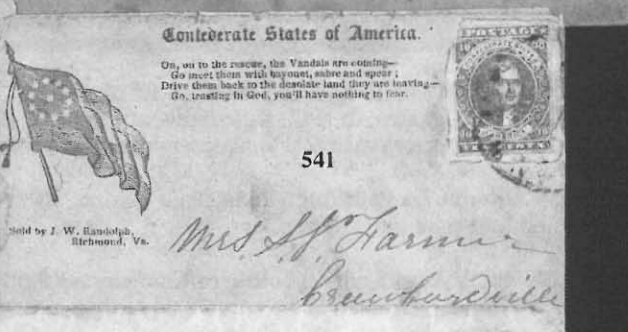 Confederate States of America.
On, on to the rescue, the Vandals are coming—
Go meet them with bayonet, sabre and spear;
Drive them back to the desolate land they are leaving—
Go, trusting in God, you'll have nothing to fear.
POSTAGE
10 10
10 10
TEN CENTS
541
Sold by J. W. Randolph,
Richmond, Va.
Mrs. S. Farmer
Crawfordville